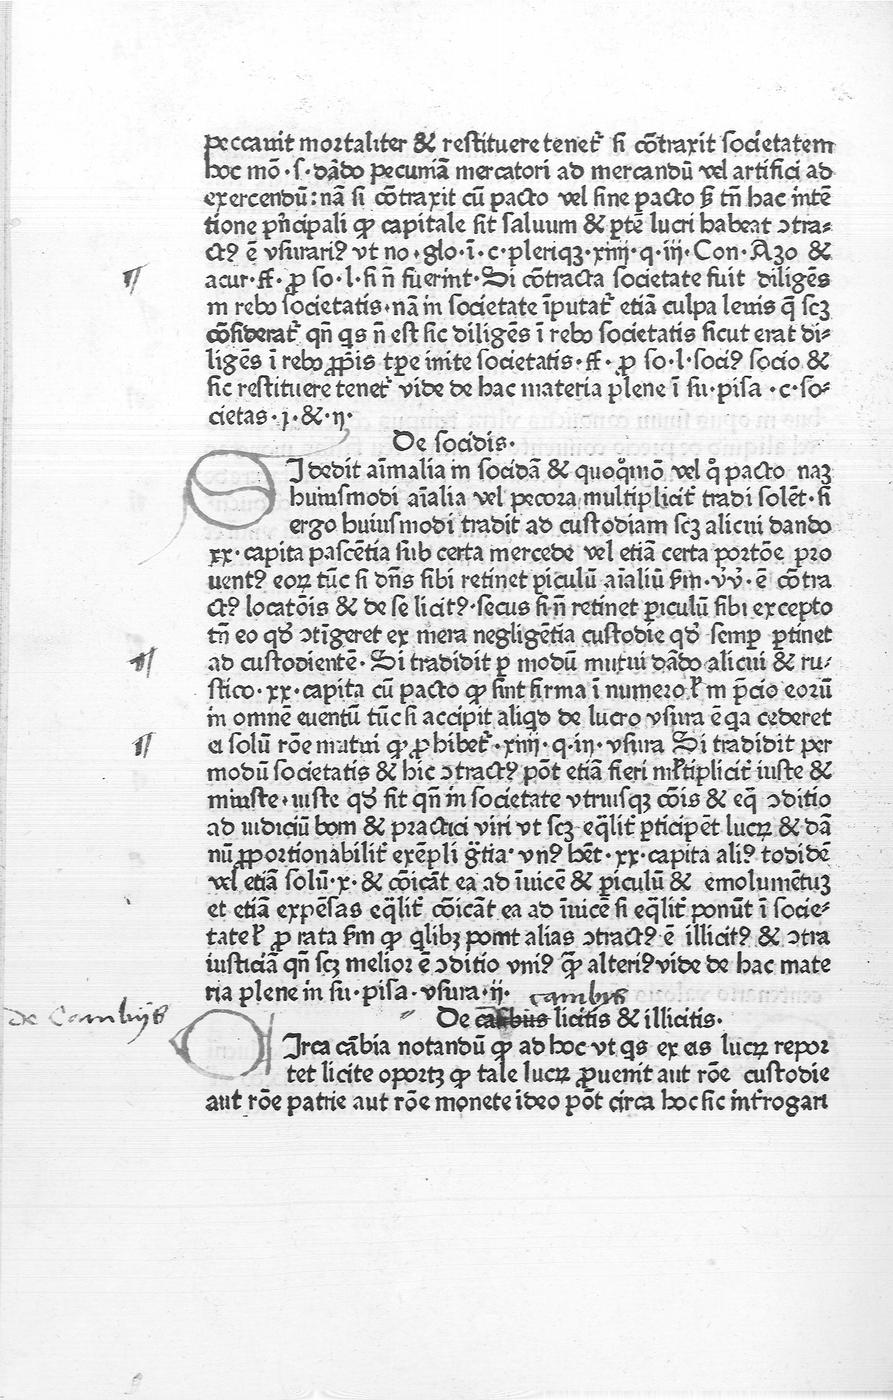 peccauit mortaliter & restituere tenet᷑ si cōtraxit societatem
hoc mō·s·dādo pecuniā mercatori ad mercandū vel artifici ad
exercendū: nā si cōtraxit cū pacto vel sine pacto tn̄ hac intē
tione pn̄cipali ꝙ capitale sit saluum & ꝑtē lucri habeat ɔtra⸗
ctꝰ ē vsurariꝰ vt no·glo·ī·c·pleriqꝫ·xiiij·q·iij·Con·Azo &
acur·ff·ꝓ so·l·si n̄ fuerint·Si cōtracta societate fuit diligēs
in rebo societatis·nā in societate īputat᷑ etiā culpa leuis q̄ scꝫ
cōsiderat᷑ qn̄ qs n̄ est sic diligēs ī rebo societatis sicut erat di⸗
ligēs ī rebo ꝓpīs tꝑe inite societatis·ff·ꝓ so·l·sociꝰ socio &
sic restituere tenet᷑ vide de hac materia plene ī su·pisa·c·so⸗
cietas·j·&·ij·
De socidis·
SI dedit aīmalia in socidā & quoq̊mō vel q̊ pacto naꝫ
huiusmodi aīalia vel pecora multiplicit᷑ tradi solēt·si
ergo huiusmodi tradit ad custodiam scꝫ alicui dando
xx·capita pascētia sub certa mercede vel etiā certa portōe pro
uentꝰ eoꝝ tūc si dn̄s sibi retinet ꝑiculū aīaliū ẜm·vv·ē cōtra
ctꝰ locatōis & de se licitꝰ·secus si n̄ retinet ꝑiculū sibi excepto
tn̄ eo qd̄ ɔtīgeret ex mera negligētia custodie qd̄ semꝑ ꝑtinet
ad custodientē·Si tradidit ꝑ modū mutui dādo alicui & ru⸗
stico·xx·capita cū pacto ꝙ sint firma ī numero ł in p̄cio eorū
in omnē euentū tūc si accipit aliqd de lucro vsura ē qa cederet
ei solū rōe mutui ꝙ ꝓhibet᷑·xiiij·q·iij·vsura Si tradidit per
modū societatis & hic ɔtractꝰ pōt etiā fieri mĺtiplicit᷑ iuste &
iniuste·iuste qd̄ fit qn̄ in societate vtriusqꝫ cōis & eq̄ ɔditio
ad iudiciū boni & practici viri vt scꝫ eq̄lit᷑ ꝑticipēt lucꝝ & dā
nū ꝓportionabilit᷑ exēpli g̃tia·vnꝰ hēt·xx·capita aliꝰ todidē
vel etiā solū·x·& cōicāt ea ad īuicē & ꝑiculū & emolumētuꝫ
et etiā expēsas eq̄lit᷑ cōicāt ea ad īuicē si eq̄lit᷑ ponūt ī socie⸗
tate ł ꝓ rata ẜm ꝙ qlibꝫ ponit alias ɔtractꝰ ē illicitꝰ & ɔtra
iusticiā qn̄ scꝫ melior ē ɔditio vniꝰ ꝙ̄ alteriꝰ vide de hac mate
ria plene in su·pisa·vsura·ij·
cambijs
De casibus licitis & illicitis·
de Cambijs
CIrca cābia notandū ꝙ ad hoc vt qs ex eis lucꝝ repor
tet licite oportꝫ ꝙ tale lucꝝ ꝓuenit aut rōe custodie
aut rōe patrie aut rōe monete ideo pōt circa hoc sic int᷑rogari